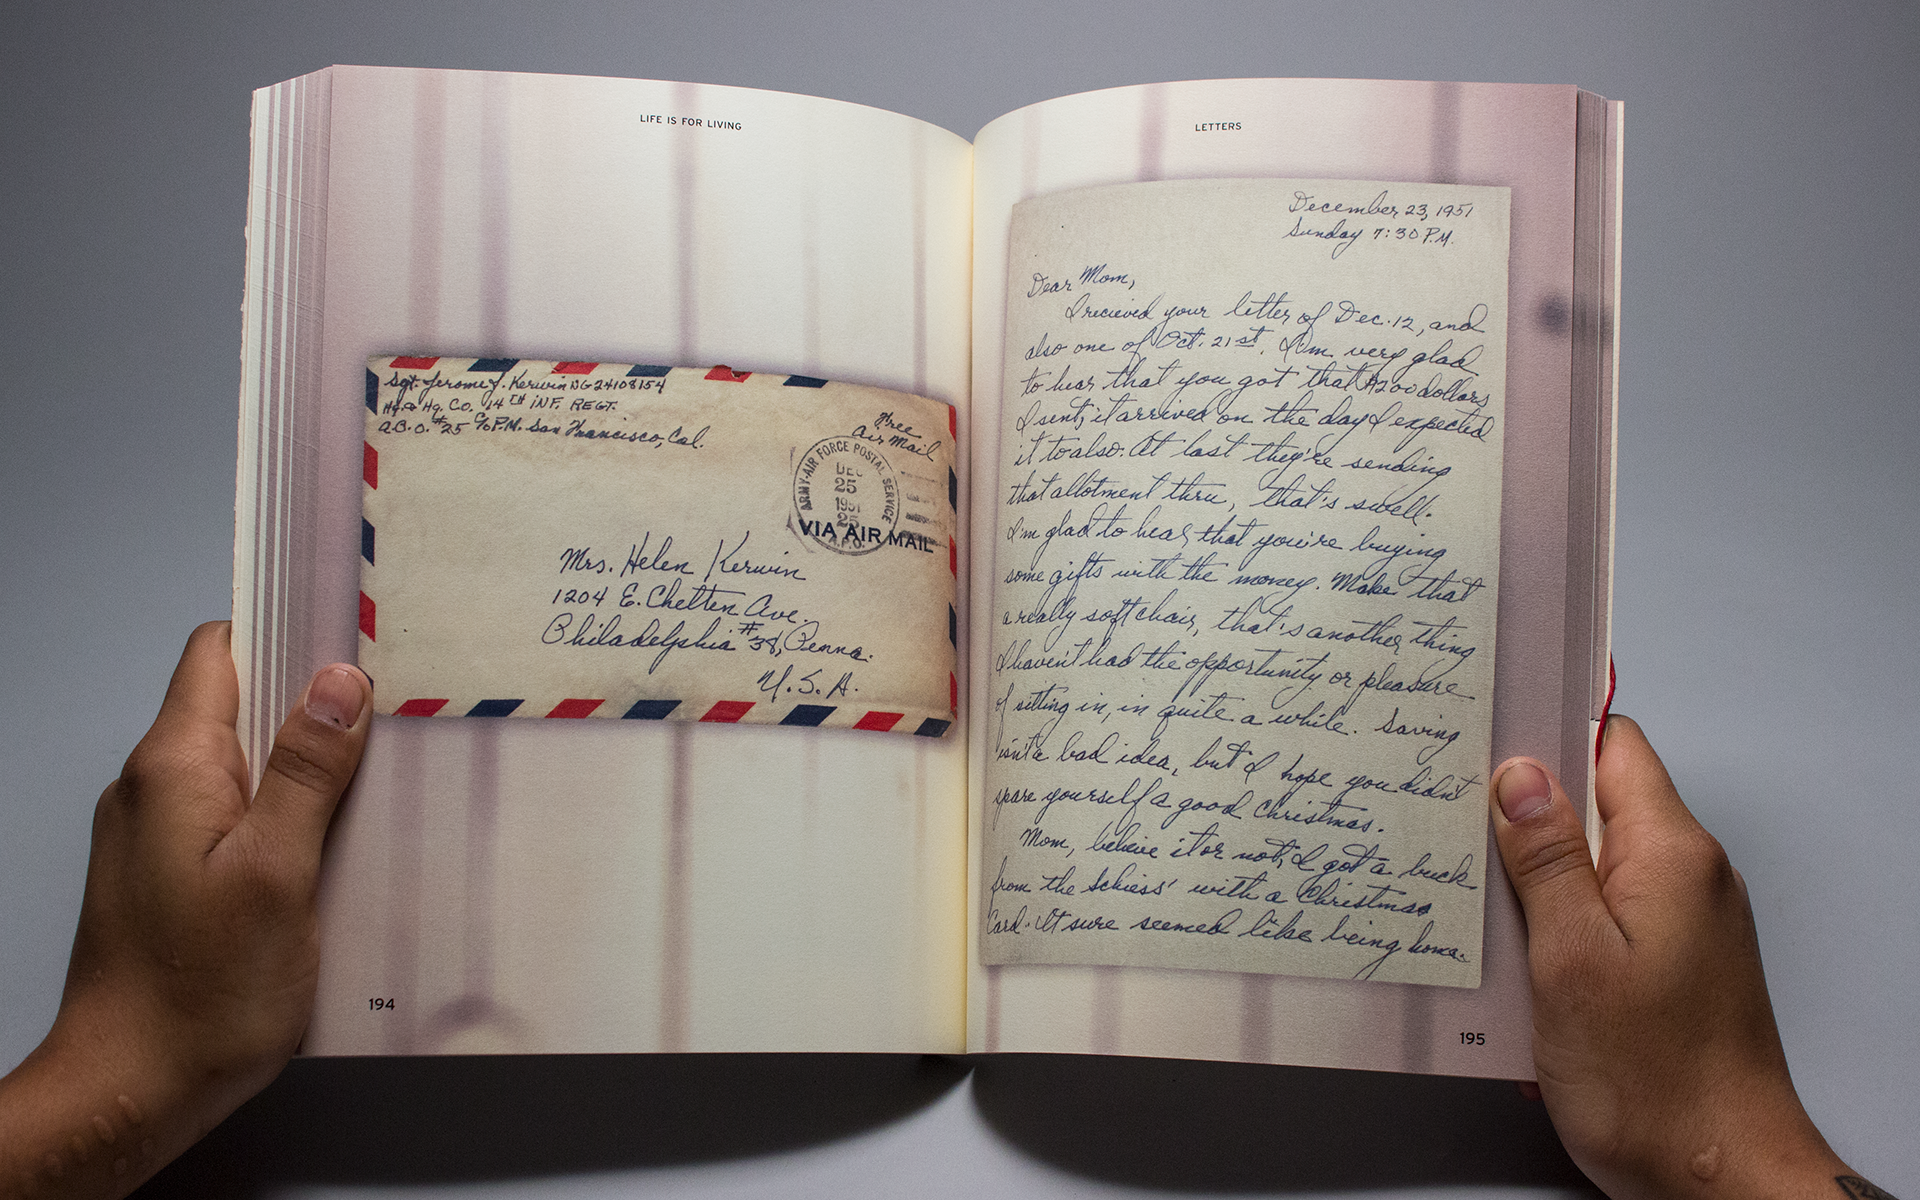 LIFE IS FOR LIVING
Sgt. Jerome J. Kerwin NG24108154
Hq. & Hq. Co. 14TH INF. REGT.
A.P.O. #25 c/o P.M. San Francisco, Cal.
Free
Air Mail
ARMY-AIR FORCE POSTAL SERVICE
DEC
25
1951
25
A.P.O.
VIA AIR MAIL
Mrs. Helen Kerwin
1204 E. Chelten Ave.
Philadelphia #38, Penna.
U.S.A.
194
LETTERS
December 23, 1951
Sunday 7:30 P.M.
Dear Mom,
I recieved your letter of Dec. 12, and
also one of Oct. 21st. I'm very glad
to hear that you got that $200 dollars
I sent, it arrived on the day I expected
it to also. At last they're sending
that allotment thru, that's swell.
I'm glad to hear that you're buying
some gifts with the money. Make that
a really soft chair, that's another thing
I haven't had the opportunity or pleasure
of sitting in, in quite a while. Saving
isn't a bad idea, but I hope you didn't
spare yourself a good Christmas.
Mom, believe it or not, I got a buck
from the Schiess' with a Christmas
Card. It sure seemed like being home.
195